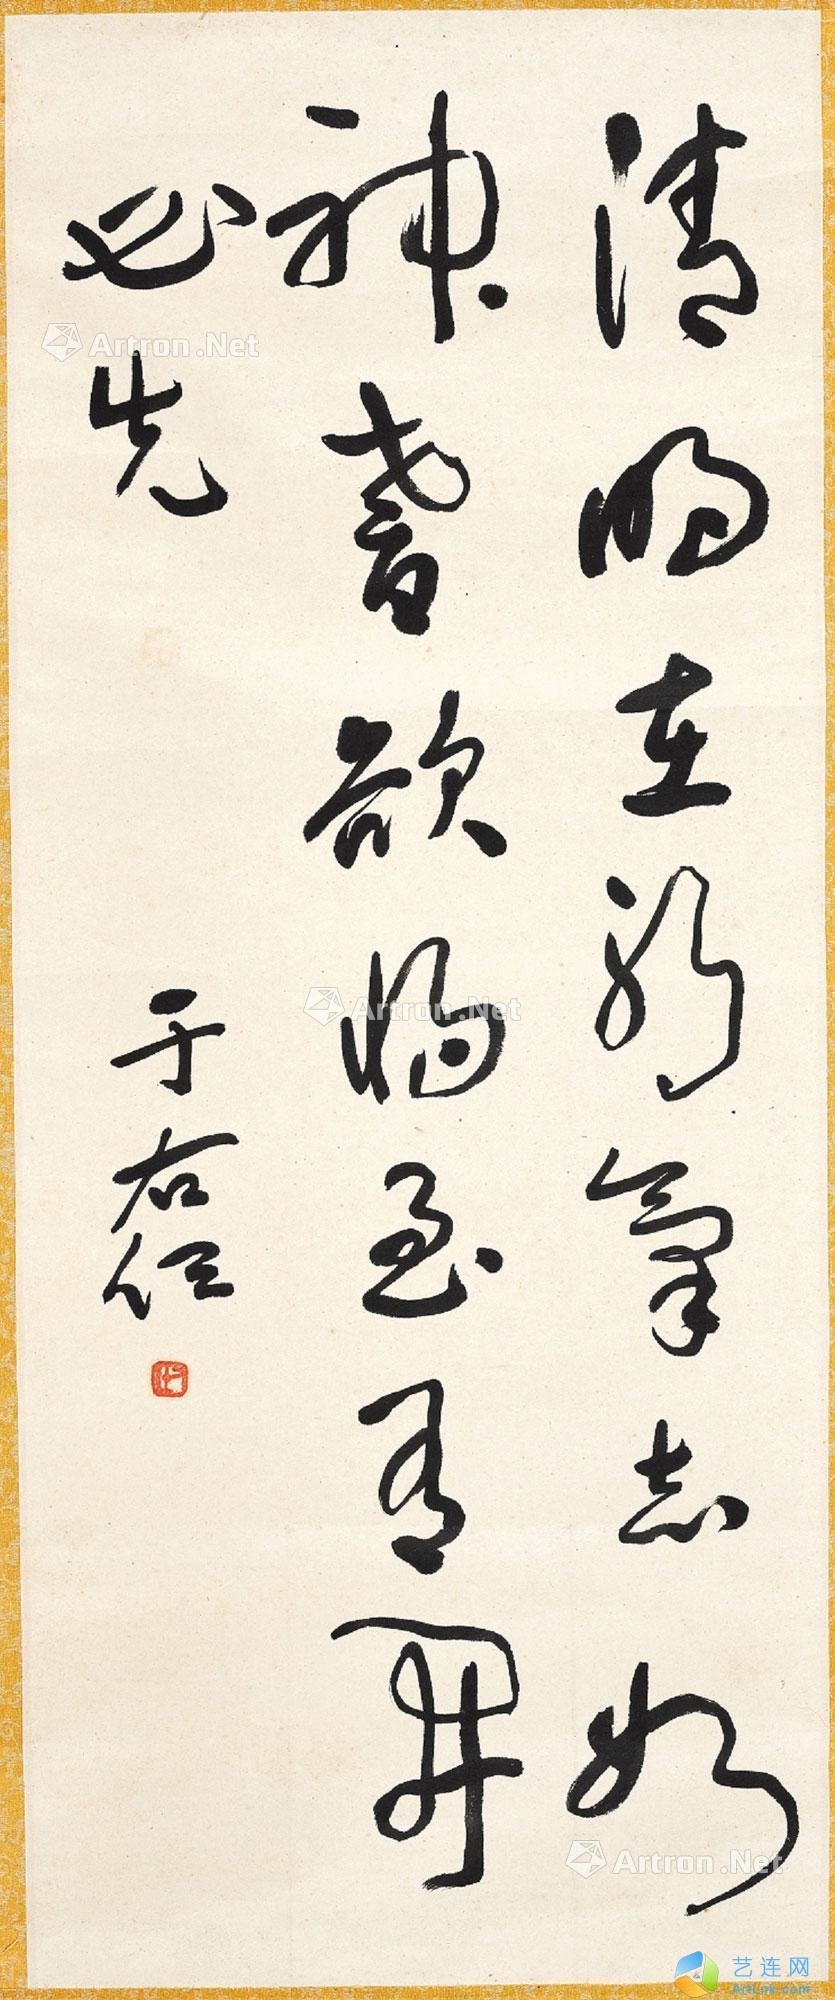 清明在躬氣志如
神耆欲將至有開
必先
于右任
Artron.Net
Artron.Net
Artron.Net
艺连网
ArtLnk.com